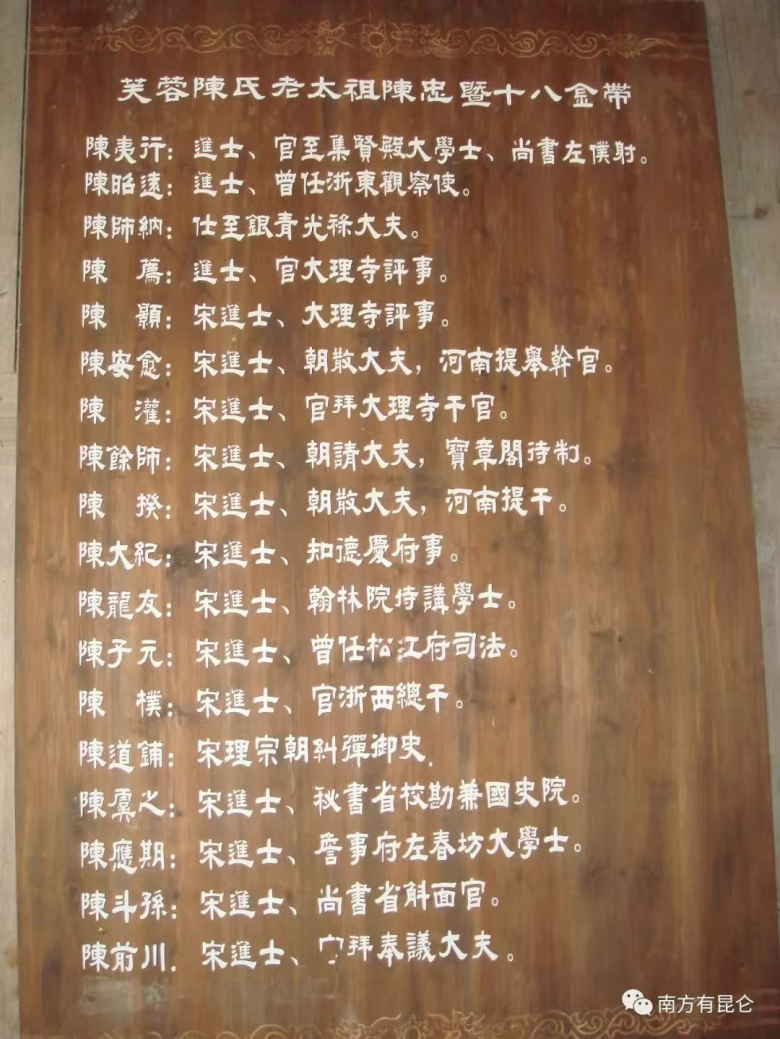 芙蓉陳氏老太祖陳忠暨十八金帶
陳夷行：進士、官至集賢殿大學士、尚書左僕射。
陳昭遠：進士、曾任浙東觀察使。
陳師納：仕至銀青光祿大夫。
陳　薦：進士、官大理寺評事。
陳　顥：宋進士、大理寺評事。
陳安愈：宋進士、朝散大夫，河南提舉幹官。
陳　灌：宋進士、官拜大理寺干官。
陳餘師：宋進士、朝請大夫，寶章閣待制。
陳　揆：宋進士、朝散大夫，河南提干。
陳大紀：宋進士、知德慶府事。
陳龍友：宋進士、翰林院侍講學士。
陳子元：宋進士、曾任松江府司法。
陳　樸：宋進士、官浙西總干。
陳道鋪：宋理宗朝糾彈御史.
陳虞之：宋進士、秘書省校勘兼國史院。
陳應期：宋進士、詹事府左春坊大學士。
陳斗孫：宋進士、尚書省斛面官。
陳前川. 宋進士、官拜奉議大夫。
南方有昆仑